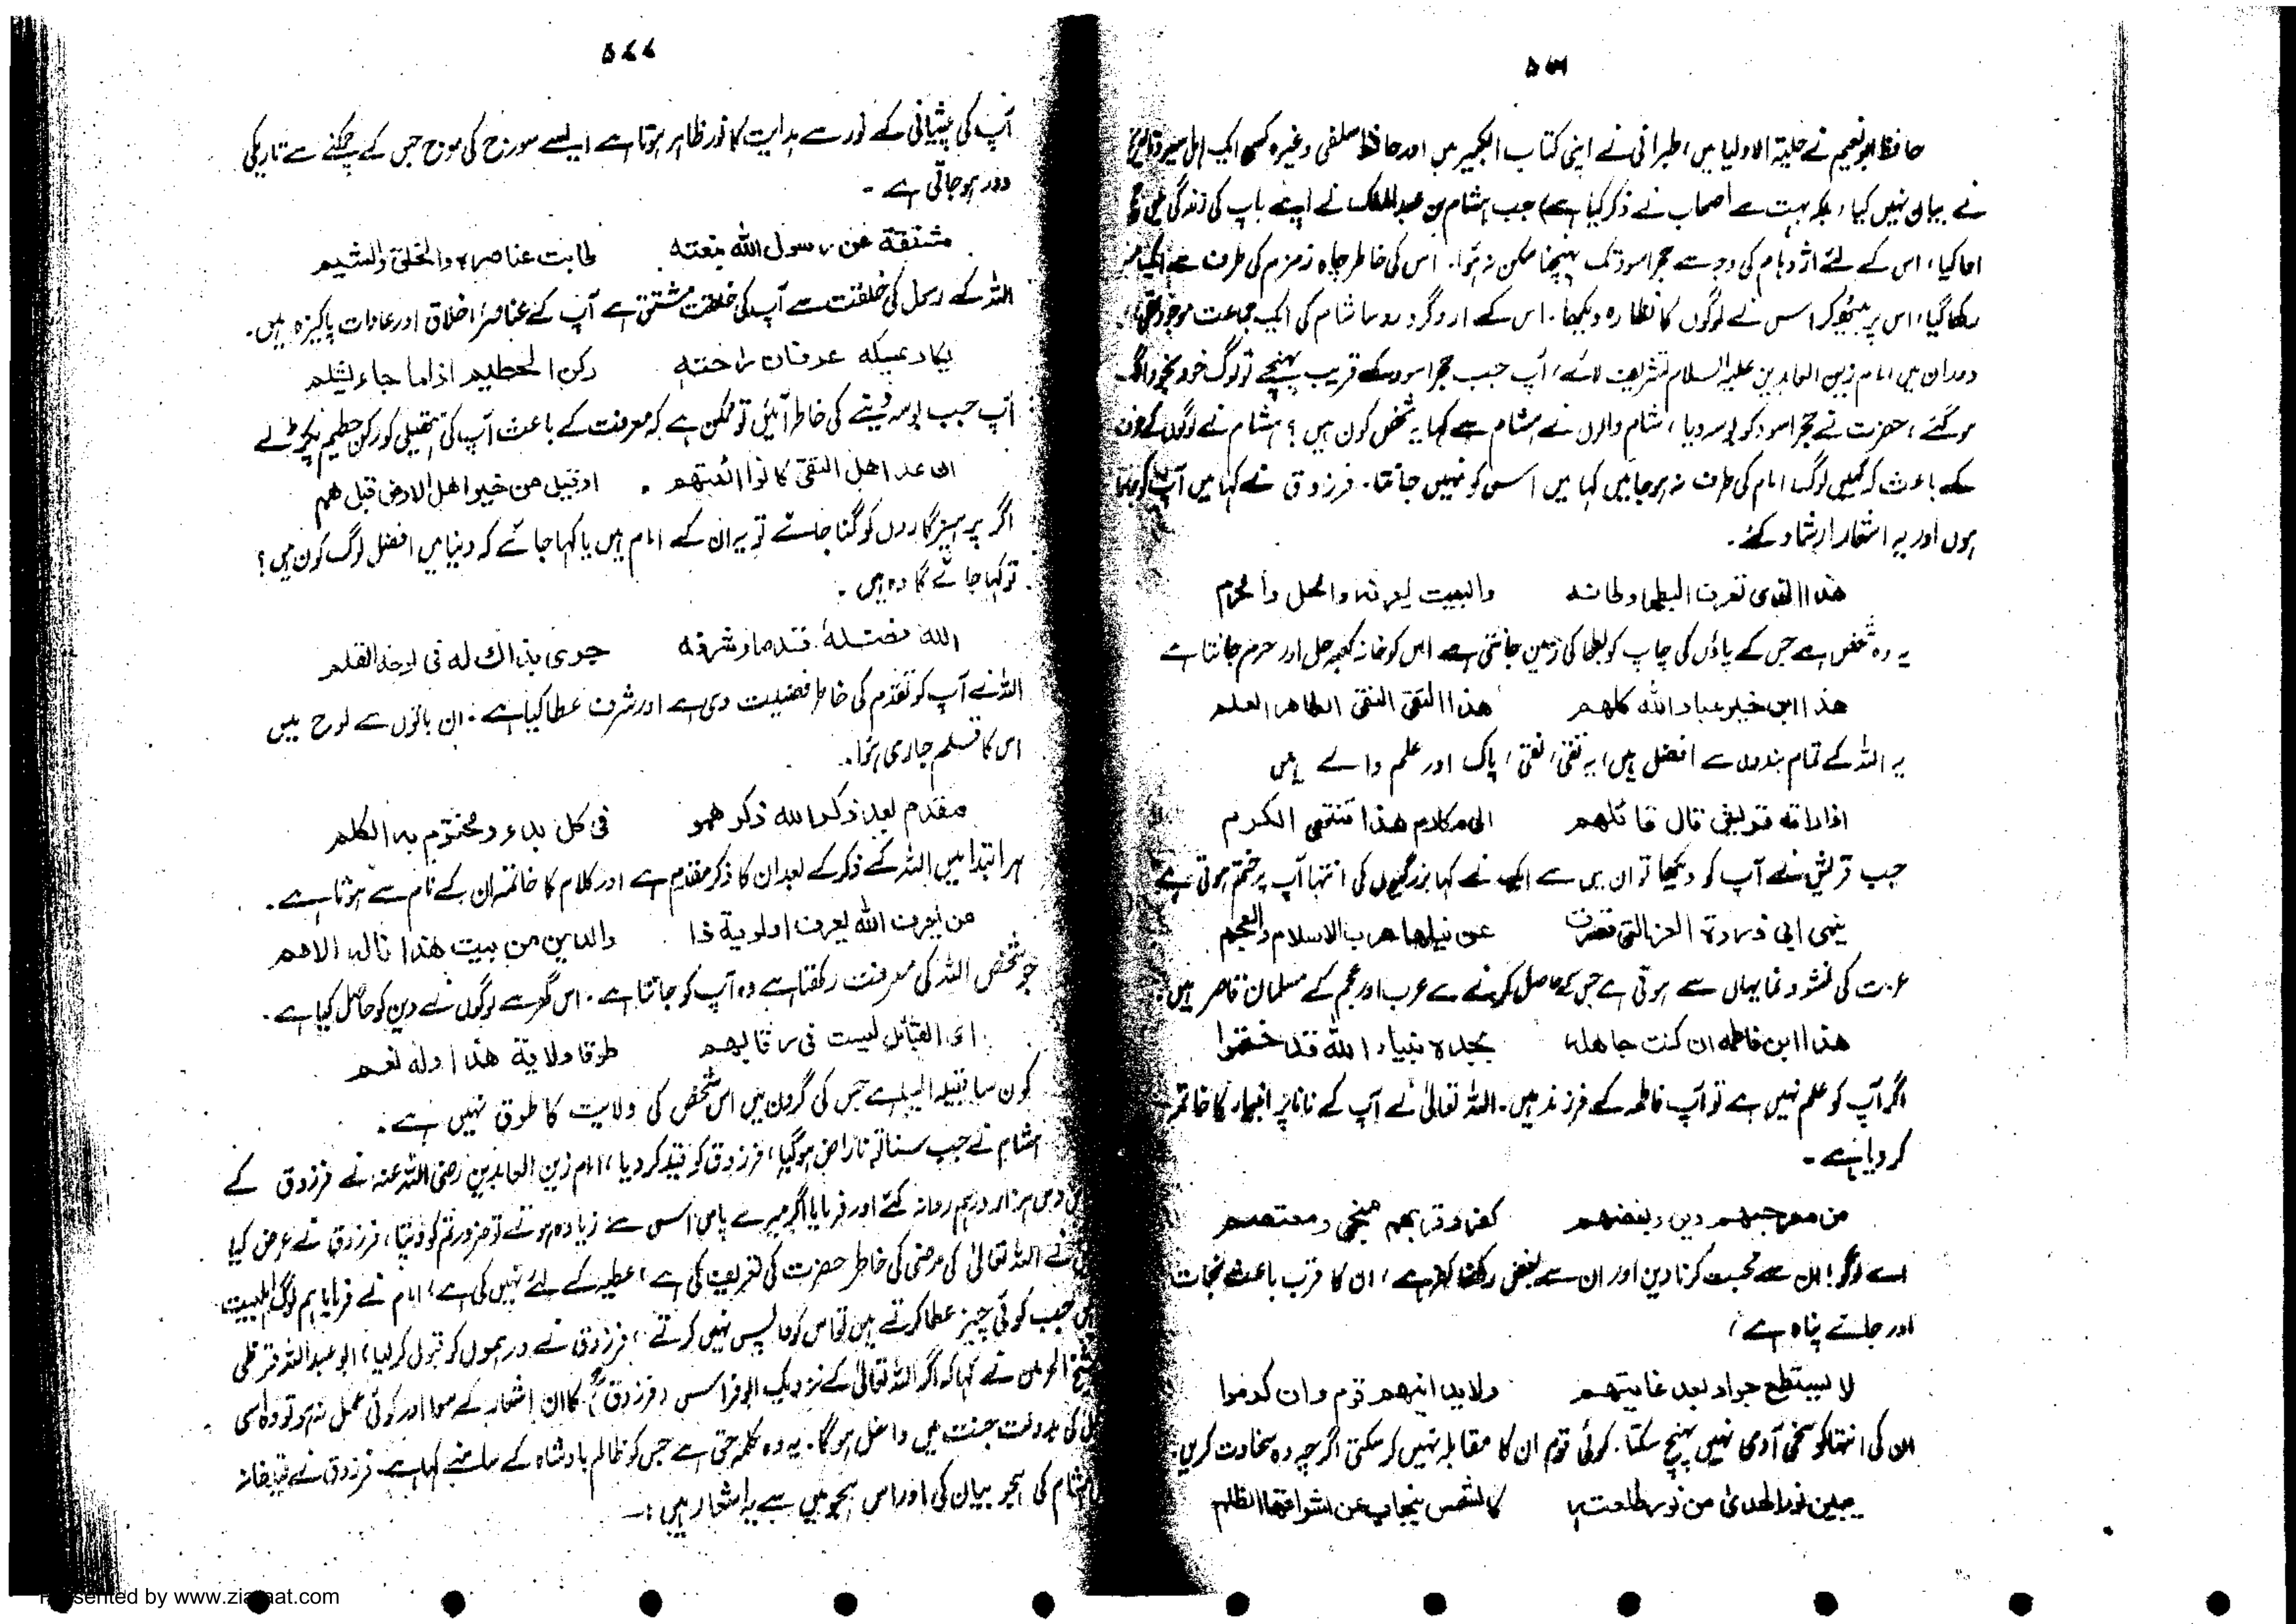 حافظ ابونعیم نے حلیۃ الاولیا میں، طبرانی نے اپنی کتاب الکبیر میں اور حافظ سلفی وغیرہ کسی ایک اہل سیر و تاریخ
نے بیان نہیں کیا، بلکہ بہت سے اصحاب نے ذکر کیا ہے) جب ہشام بن عبدالملک نے اپنے باپ کی زندگی میں حج
ادا کیا، اس کے لئے اژدہام کی وجہ سے حجر اسود تک پہنچنا ممکن نہ ہوا۔ اس کی خاطر چاہ زمزم کی طرف سے ایک منبر
رکھا گیا، اس پر بیٹھ کر اس نے لوگوں کا نظارہ دیکھا۔ اس کے ارد گرد روسا شام کی ایک جماعت موجود تھی،
دوران میں امام زین العابدین علیہ السلام تشریف لائے، آپ جب حجر اسود کے قریب پہنچے تو لوگ خود بخود الگ
ہو گئے، حضرت نے حجر اسود کو بوسہ دیا، شام والوں نے ہشام سے کہا یہ شخص کون ہیں؟ ہشام نے لوگوں کے خوف
کے باعث کہ کہیں لوگ امام کی طرف نہ ہو جاہیں کہا میں اس کو نہیں جانتا۔ فرزدق نے کہا میں آپ کو جانتا
ہوں اور یہ اشعار ارشاد کئے۔
هذا الذی تعرف البطحا وطاته والبیت یعرفه والحل والحرم
یہ وہ شخص ہے جس کے پاؤں کی چاپ کو بطحا کی زمین جانتی ہے اس کو خانہ کعبہ حل اور حرم جانتا ہے
هذا ابن خیر عباد الله کلهم هذا التقی النقی الطاهر العلم
یہ اللہ کے تمام بندوں سے افضل ہیں، یہ تقی، نقی، پاک اور علم والے ہیں
اذا راته قریش قال قائلهم الی مکارم هذا ینتهی الکرم
جب قریش نے آپ کو دیکھا تو ان میں سے ایک نے کہا بزرگیوں کی انتہا آپ پر ختم ہوتی ہے
ینمی الی ذروة العز التی قصرت عن نیلها عرب الاسلام والعجم
عزت کی نشو و نما یہاں سے ہوتی ہے جس کے حاصل کرنے سے عرب اور عجم کے مسلمان قاصر ہیں
هذا ابن فاطمه ان کنت جاهله بجده انبیاء الله قد ختموا
اگر آپ کو علم نہیں ہے تو آپ فاطمہ کے فرزند ہیں۔ اللہ تعالیٰ نے آپ کے نانا پر انبیاء کا خاتمہ
کر دیا ہے۔
من معشر حبهم دین وبغضهم کفر وقربهم منجی ومعتصم
اے لوگو! ان سے محبت کرنا دین اور ان سے بغض رکھنا کفر ہے، ان کا قرب باعث نجات
اور جائے پناہ ہے،
لا یستطع جواد بعد غایتهم ولا یدانیهم قوم وان کرموا
ان کی انتہا کو سخی آدمی نہیں پہنچ سکتا۔ کوئی قوم ان کا مقابلہ نہیں کر سکتی اگرچہ وہ سخاوت کریں
یبین نور الهدی من نور طلعته کالشمس ینجاب عن اشراقها الظلم
۵۷۷
آپ کی پیشانی کے نور سے ہدایت کا نور ظاہر ہوتا ہے ایسے سورج کی موج جس کے چمکنے سے تاریکی
دور ہو جاتی ہے۔
مشتقة من رسول الله بنعته طابت عناصره والخلق والشیم
اللہ کے رسول کی خلقت سے آپ کی خلقت مشتق ہے آپ کے عناصر، اخلاق اور عادات پاکیزہ ہیں۔
یکاد یمسکه عرفان راحته رکن الحطیم اذا ما جاء یستلم
آپ جب بوسہ دینے کی خاطر آئیں تو ممکن ہے کہ معرفت کے باعث آپ کی ہتھیلی کو رکن حطیم پکڑ لے
ان عد اهل التقی کانوا ائمتهم او قیل من خیر اهل الارض قیل هم
اگر پرہیزگاروں کو گنا جائے تو یہ ان کے امام ہیں یا کہا جائے کہ دنیا میں افضل لوگ کون ہیں؟
تو کہا جائے گا وہ ہیں۔
الله فضله قدما وشرفه جری بذاک له فی لوحه القلم
اللہ نے آپ کو تقدم کی خاطر فضیلت دی ہے اور شرف عطا کیا ہے۔ ان باتوں سے لوح میں
اس کا قلم جاری ہوا۔
مقدم بعد ذکر الله ذکر همو فی کل بدء ومختوم به الکلم
ہر ابتدا میں اللہ کے ذکر کے بعد ان کا ذکر مقدم ہے اور کلام کا خاتمہ ان کے نام سے ہوتا ہے۔
من یعرف الله یعرف اولویة ذا والدین من بیت هذا ناله الامم
جو شخص اللہ کی معرفت رکھتا ہے وہ آپ کو جانتا ہے۔ اس گھر سے لوگوں نے دین کو حاصل کیا ہے۔
ای القبائل لیست فی رقابهم طوقا ولایة هذا اوله نعم
کون سا قبیلہ ایسا ہے جس کی گردن میں اس شخص کی ولایت کا طوق نہیں ہے۔
ہشام نے جب سنا تو ناراض ہو گیا، فرزدق کو قید کر دیا، امام زین العابدین رضی اللہ عنہ نے فرزدق کے
دس ہزار درہم روانہ کئے اور فرمایا اگر میرے پاس اس سے زیادہ ہوتے تو ضرور تم کو دیتا، فرزدق نے عرض کیا
نے اللہ تعالیٰ کی مرضی کی خاطر حضرت کی تعریف کی ہے، عطیہ کے لئے نہیں کی ہے، امام نے فرمایا ہم لوگ اہلبیت
جب کوئی چیز عطا کرتے ہیں تو اس کو واپس نہیں کرتے، فرزدق نے درہموں کو قبول کر لیا، ابو عبداللہ قرطبی
شیخ الحرمین نے کہا کہ اگر اللہ تعالیٰ کے نزدیک ابو فراس (فرزدق) کا ان اشعار کے سوا اور کوئی عمل نہ ہو تو وہ اسی
کی بدولت جنت میں داخل ہوگا۔ یہ وہ کلمہ حق ہے جس کو ظالم بادشاہ کے سامنے کہا ہے۔ فرزدق نے قیدخانہ
ہشام کی ہجو بیان کی اور اس ہجو میں سے یہ اشعار ہیں :۔
www.ziaraat.com